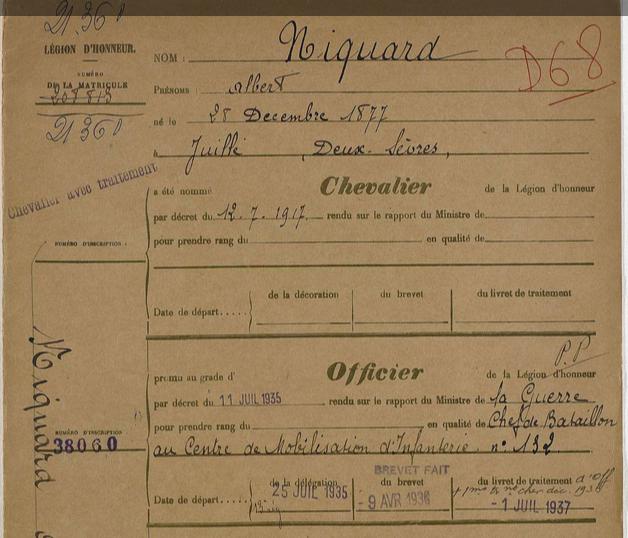 21.360
LÉGION D'HONNEUR.
NUMÉRO
DE LA MATRICULE
208813
21360
Chevalier avec traitement
NUMÉRO D'INSCRIPTION :
Niquard
NUMÉRO D'INSCRIPTION
38060
NOM : Niquard
D68
PRÉNOMS : Albert
né le 28 Decembre 1877
à Juillé, Deux-Sèvres,
a été nommé Chevalier de la Légion d'honneur
par décret du 12.7.1917. rendu sur le rapport du Ministre de
pour prendre rang du en qualité de
de la décoration du brevet du livret de traitement
Date de départ.....
P.P
promu au grade d' Officier de la Légion d'honneur
par décret du 11 JUIL 1935 rendu sur le rapport du Ministre de la Guerre
pour prendre rang du en qualité de Chef de Bataillon
au Centre de Mobilisation d'Infanterie n° 132
BREVET FAIT
de la délégation du brevet du livret de traitement d'Off
Date de départ..... 25 JUIL 1935 - 9 AVR 1936 - 1 JUIL 1937